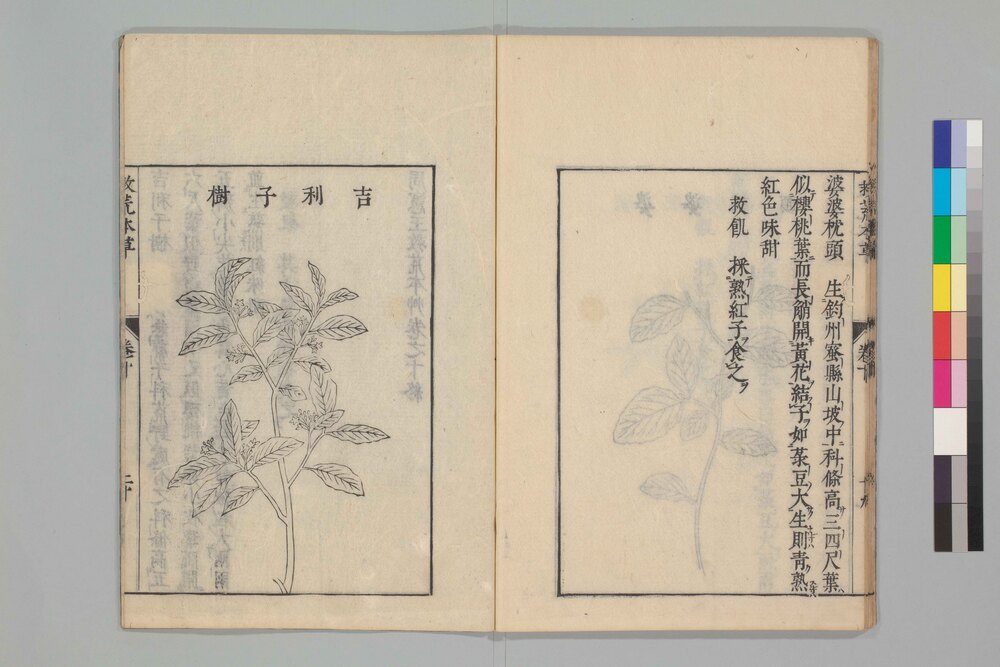 波婆枕頭　生鈞州蜜縣山坡中科條高三四尺葉
似櫻桃葉而長觧開黃花結子如菉豆大生則青熟
紅色味甜
救飢　採熟紅子食之
吉利子樹
救荒本草
卷十
二十